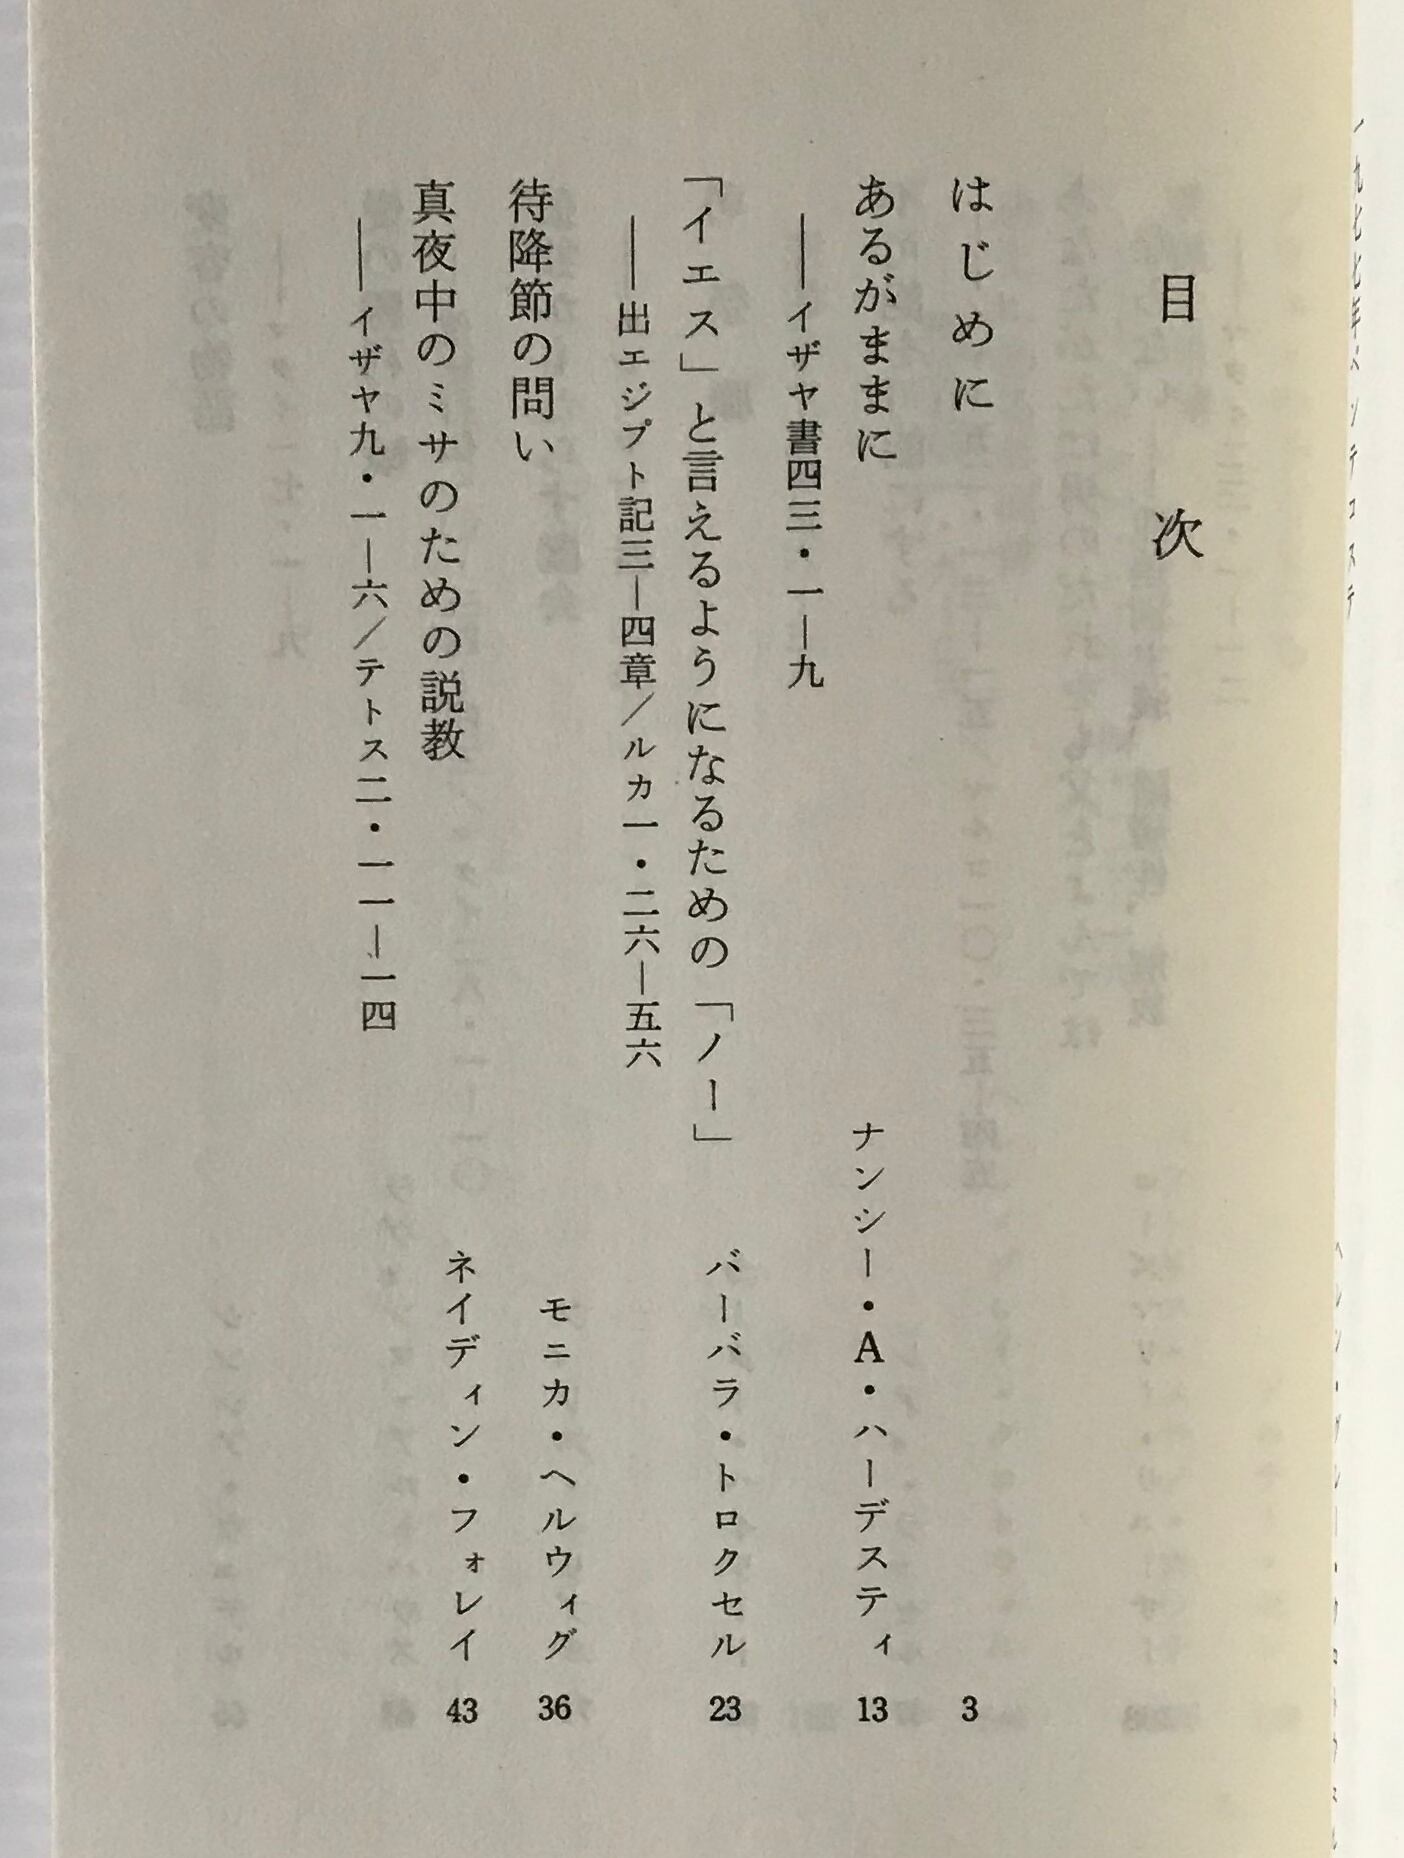 目次
はじめに 3
あるがままに ナンシー・A・ハーデスティ 13
――イザヤ書四三・一―九
「イエス」と言えるようになるための「ノー」 バーバラ・トロクセル 23
――出エジプト記三―四章／ルカ一・二六―五六
待降節の問い モニカ・ヘルウィグ 36
真夜中のミサのための説教 ネイディン・フォレイ 43
――イザヤ九・一―六／テトス二・一一―一四